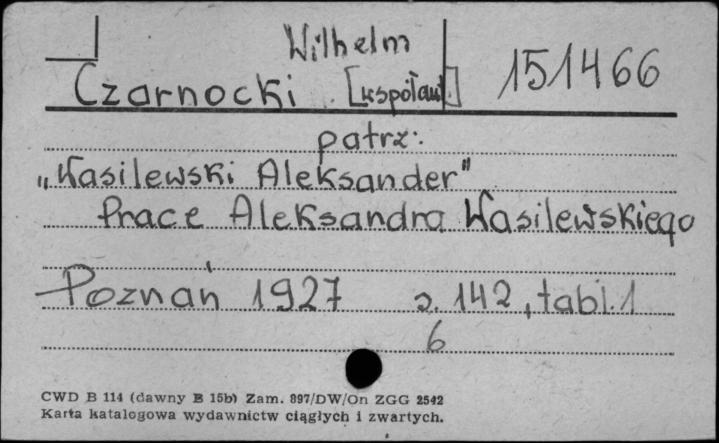 Wilhelm
Czarnocki [współaut.] 151466
patrz:
„Wasilewski Aleksander"
Prace Aleksandra Wasilewskiego
Poznań 1927 s. 142, tabl. 1
6
CWD B 114 (dawny B 15b) Zam. 897/DW/On ZGG 2542
Karta katalogowa wydawnictw ciągłych i zwartych.